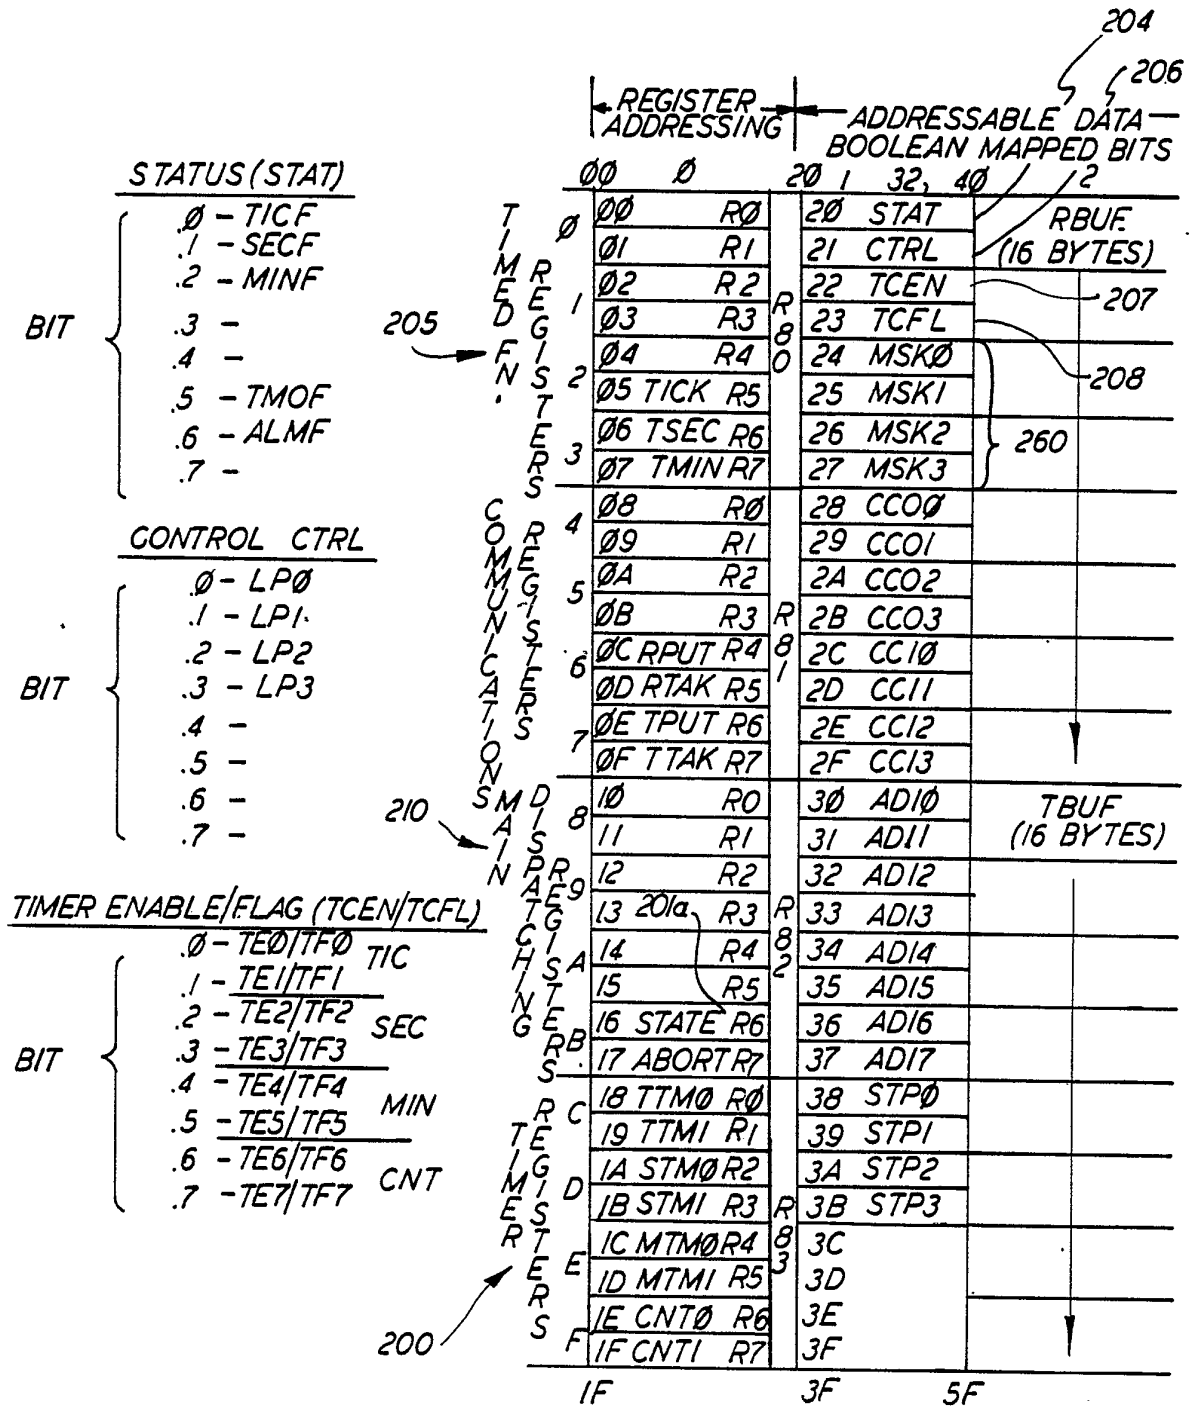 204
206
REGISTER ADDRESSING
ADDRESSABLE DATA
BOOLEAN MAPPED BITS
ØØ Ø 2Ø 1 32, 4Ø 2
STATUS (STAT)
BIT
.Ø - TICF
.1 - SECF
.2 - MINF
.3 -
.4 -
.5 - TMOF
.6 - ALMF
.7 -
CONTROL CTRL
BIT
.Ø - LPØ
.1 - LP1
.2 - LP2
.3 - LP3
.4 -
.5 -
.6 -
.7 -
TIMER ENABLE/FLAG (TCEN/TCFL)
BIT
.Ø - TEØ/TFØ
.1 - TE1/TF1
TIC
.2 - TE2/TF2
.3 - TE3/TF3
SEC
.4 - TE4/TF4
.5 - TE5/TF5
MIN
.6 - TE6/TF6
.7 - TE7/TF7
CNT
205
TIMED FN.
REGISTERS
COMMUNICATIONS
REGISTERS
210
MAIN
DISPATCHING
REGISTERS
TIMER
REGISTERS
200
Ø
1
2
3
4
5
6
7
8
9
A
B
C
D
E
F
ØØ RØ
Ø1 R1
Ø2 R2
Ø3 R3
Ø4 R4
Ø5 TICK R5
Ø6 TSEC R6
Ø7 TMIN R7
Ø8 RØ
Ø9 R1
ØA R2
ØB R3
ØC RPUT R4
ØD RTAK R5
ØE TPUT R6
ØF TTAK R7
1Ø R0
11 R1
12 R2
13 201a R3
14 R4
15 R5
16 STATE R6
17 ABORT R7
18 TTMØ RØ
19 TTM1 R1
1A STMØ R2
1B STM1 R3
1C MTMØ R4
1D MTM1 R5
1E CNTØ R6
1F CNT1 R7
1F
RB0
RB1
RB2
RB3
2Ø STAT
21 CTRL
22 TCEN
23 TCFL
24 MSKØ
25 MSK1
26 MSK2
27 MSK3
28 CCOØ
29 CCO1
2A CCO2
2B CCO3
2C CCIØ
2D CCI1
2E CCI2
2F CCI3
3Ø ADIØ
31 ADI1
32 ADI2
33 ADI3
34 ADI4
35 ADI5
36 ADI6
37 ADI7
38 STPØ
39 STP1
3A STP2
3B STP3
3C
3D
3E
3F
3F
5F
RBUF
(16 BYTES)
207
208
260
TBUF
(16 BYTES)